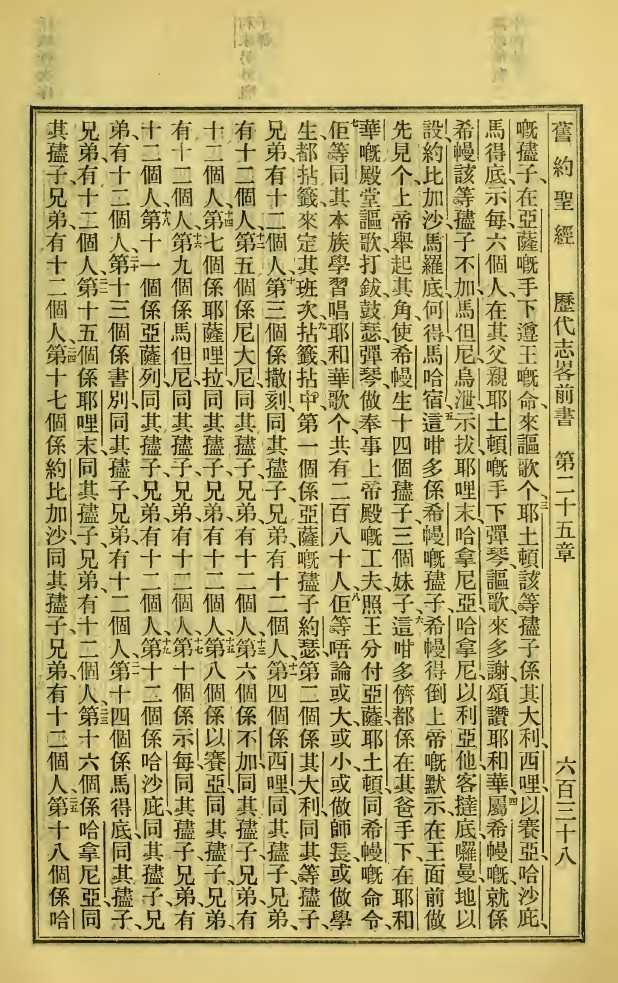 舊約聖經 歷代志畧前書 第二十五章 六百三十八
嘅孻子、在亞薩嘅手下遵王嘅命來謳歌个、三耶土頓該等孻子係其大利、西哩、以賽亞、哈沙庇、
馬得底、示每、六個人在其父親耶土頓嘅手下彈琴謳歌、來多謝頌讚耶和華、四屬希幔嘅、就係
希幔該等孻子、不加、馬但尼、烏泄、示拔、耶哩末、哈拿尼亞、哈拿尼、以利亞他、客撻底、囉曼地以
設、約比加沙、馬羅底、何得、馬哈宿、五這咁多係希幔嘅孻子、希幔得倒上帝嘅默示、在王面前做
先見个、上帝舉起其角、使希幔生十四個孻子、三個妹子、六這咁多儕都係在其爸手下、在耶和
華嘅殿堂謳歌、打鈸鼓瑟彈琴、做奉事上帝殿嘅工夫、照王分付亞薩、耶土頓、同希幔嘅命令、
七佢等同其本族學習唱耶和華歌个、共有二百八十人、八佢等唔論或大、或小、或做師長、或做學
生、都拈籤來定其班次、九拈籤拈中、第一個係亞薩嘅孻子約瑟、第二個係其大利、同其等孻子、
兄弟、有十二個人、十第三個係撒刻、同其孻子、兄弟、有十二個人、十一第四個係西哩、同其孻子、兄弟、
有十二個人、十二第五個係尼大尼、同其孻子、兄弟、有十二個人、十三第六個係不加、同其孻子、兄弟、有
十二個人、十四第七個係耶薩哩拉、同其孻子、兄弟、有十二個人、十五第八個係以賽亞、同其孻子、兄弟、
有十二個人、十六第九個係馬但尼、同其孻子、兄弟、有十二個人、十七第十個係示每、同其孻子、兄弟、有
十二個人、十八第十一個係亞薩列、同其孻子、兄弟、有十二個人、十九第十二個係哈沙庇、同其孻子、兄
弟、有十二個人、二十第十三個係書別、同其孻子、兄弟、有十二個人、二一第十四個係馬得底、同其孻子、
兄弟、有十二個人、二二第十五個係耶哩末、同其孻子、兄弟、有十二個人、二三第十六個係哈拿尼亞、同
其孻子、兄弟、有十二個人、二四第十七個係約比加沙、同其孻子、兄弟、有十二個人、二五第十八個係哈